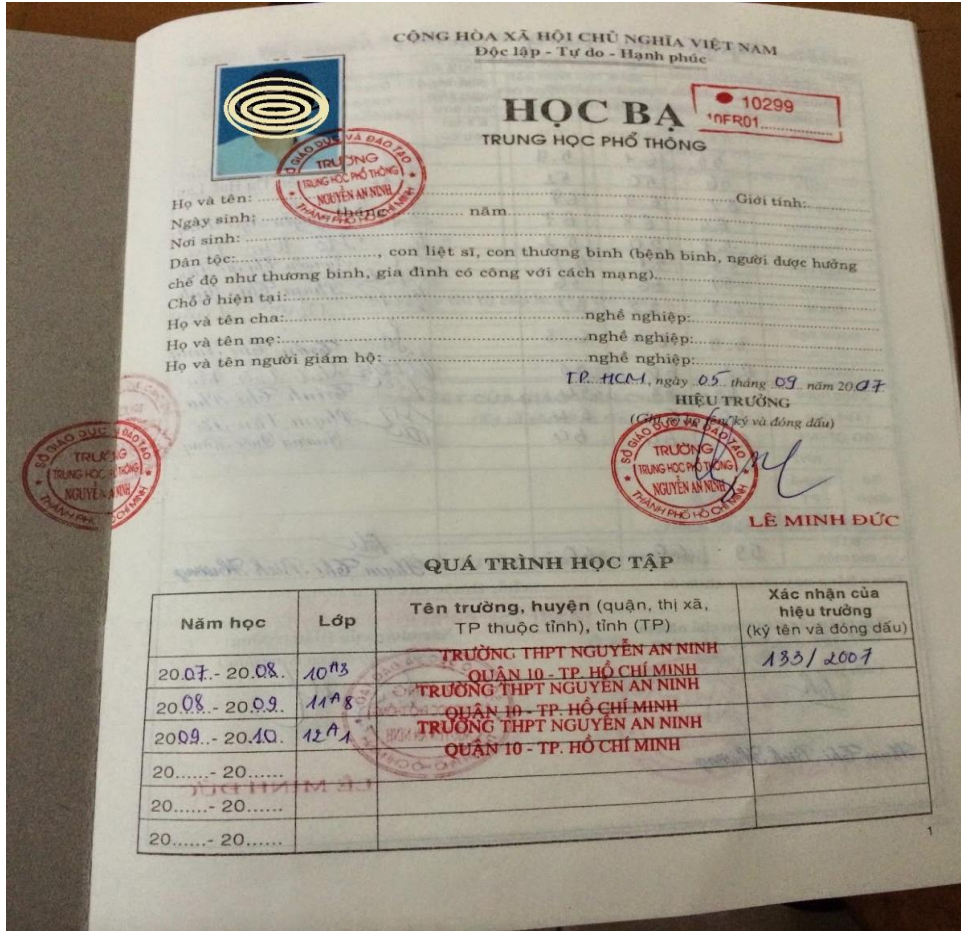 CỘNG HÒA XÃ HỘI CHỦ NGHĨA VIỆT NAM
Độc lập - Tự do - Hạnh phúc
HỌC BẠ
TRUNG HỌC PHỔ THÔNG
10299
10FR01
SỞ GIÁO DỤC VÀ ĐÀO TẠO
TRƯỜNG
TRUNG HỌC PHỔ THÔNG
NGUYỄN AN NINH
THÀNH PHỐ HỒ CHÍ MINH
Họ và tên: Giới tính:
Ngày sinh: tháng năm
Nơi sinh:
Dân tộc:, con liệt sĩ, con thương binh (bệnh binh, người được hưởng
chế độ như thương binh, gia đình có công với cách mạng)
Chỗ ở hiện tại:
Họ và tên cha: nghề nghiệp:
Họ và tên mẹ: nghề nghiệp:
Họ và tên người giám hộ: nghề nghiệp:
T.P. HCM, ngày 05 tháng 09 năm 2007
HIỆU TRƯỞNG
(Ghi rõ họ tên, ký và đóng dấu)
SỞ GIÁO DỤC VÀ ĐÀO TẠO
TRƯỜNG
TRUNG HỌC PHỔ THÔNG
NGUYỄN AN NINH
THÀNH PHỐ HỒ CHÍ MINH
SỞ GIÁO DỤC VÀ ĐÀO TẠO
TRƯỜNG
TRUNG HỌC PHỔ THÔNG
NGUYỄN AN NINH
THÀNH PHỐ HỒ CHÍ MINH
LÊ MINH ĐỨC
QUÁ TRÌNH HỌC TẬP
Năm học Lớp Tên trường, huyện (quận, thị xã, TP thuộc tỉnh), tỉnh (TP) Xác nhận của hiệu trưởng (ký tên và đóng dấu)
2007.- 2008. 10A3 TRƯỜNG THPT NGUYỄN AN NINH QUẬN 10 - TP. HỒ CHÍ MINH 133/2007
2008.- 2009. 11A8 TRƯỜNG THPT NGUYỄN AN NINH QUẬN 10 - TP. HỒ CHÍ MINH
2009.- 2010. 12A1 TRƯỜNG THPT NGUYỄN AN NINH QUẬN 10 - TP. HỒ CHÍ MINH
20......- 20......
20......- 20......
20......- 20......
1